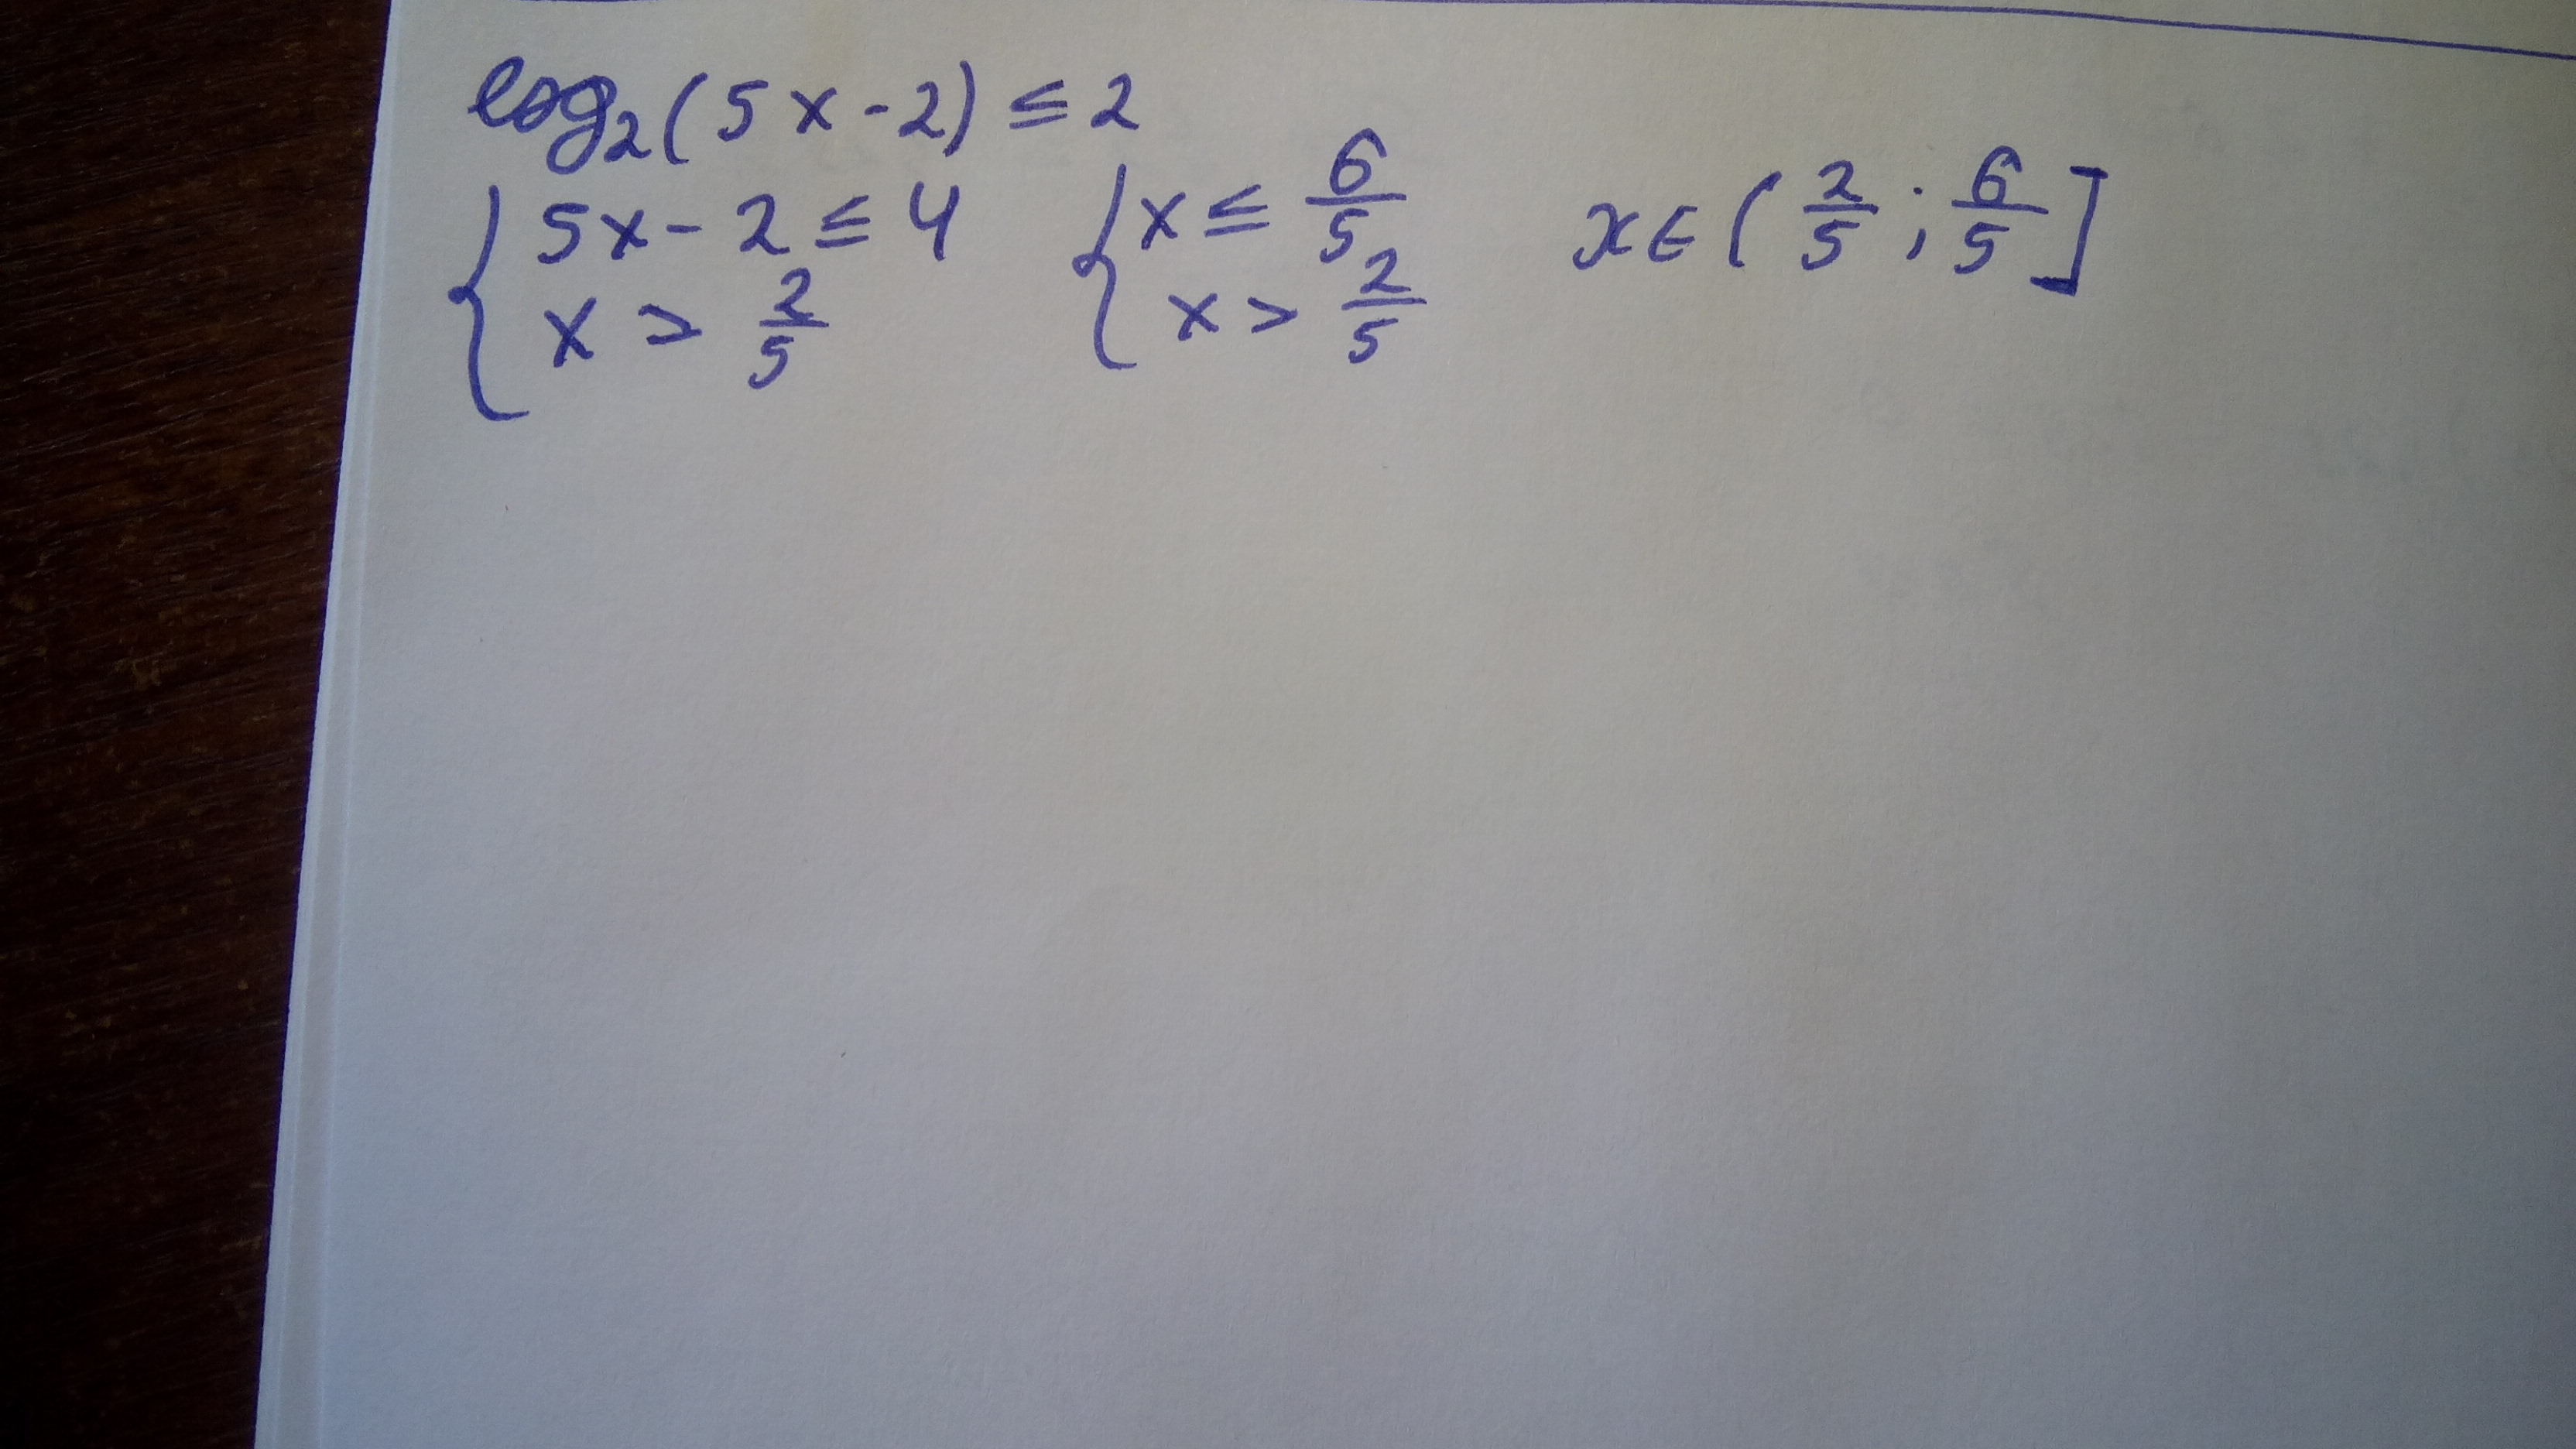 log₂(5x-2) ≤ 2
{ 5x - 2 ≤ 4 { x ≤ 6/5 x ∈ (2/5 ; 6/5]
x > 2/5 x > 2/5